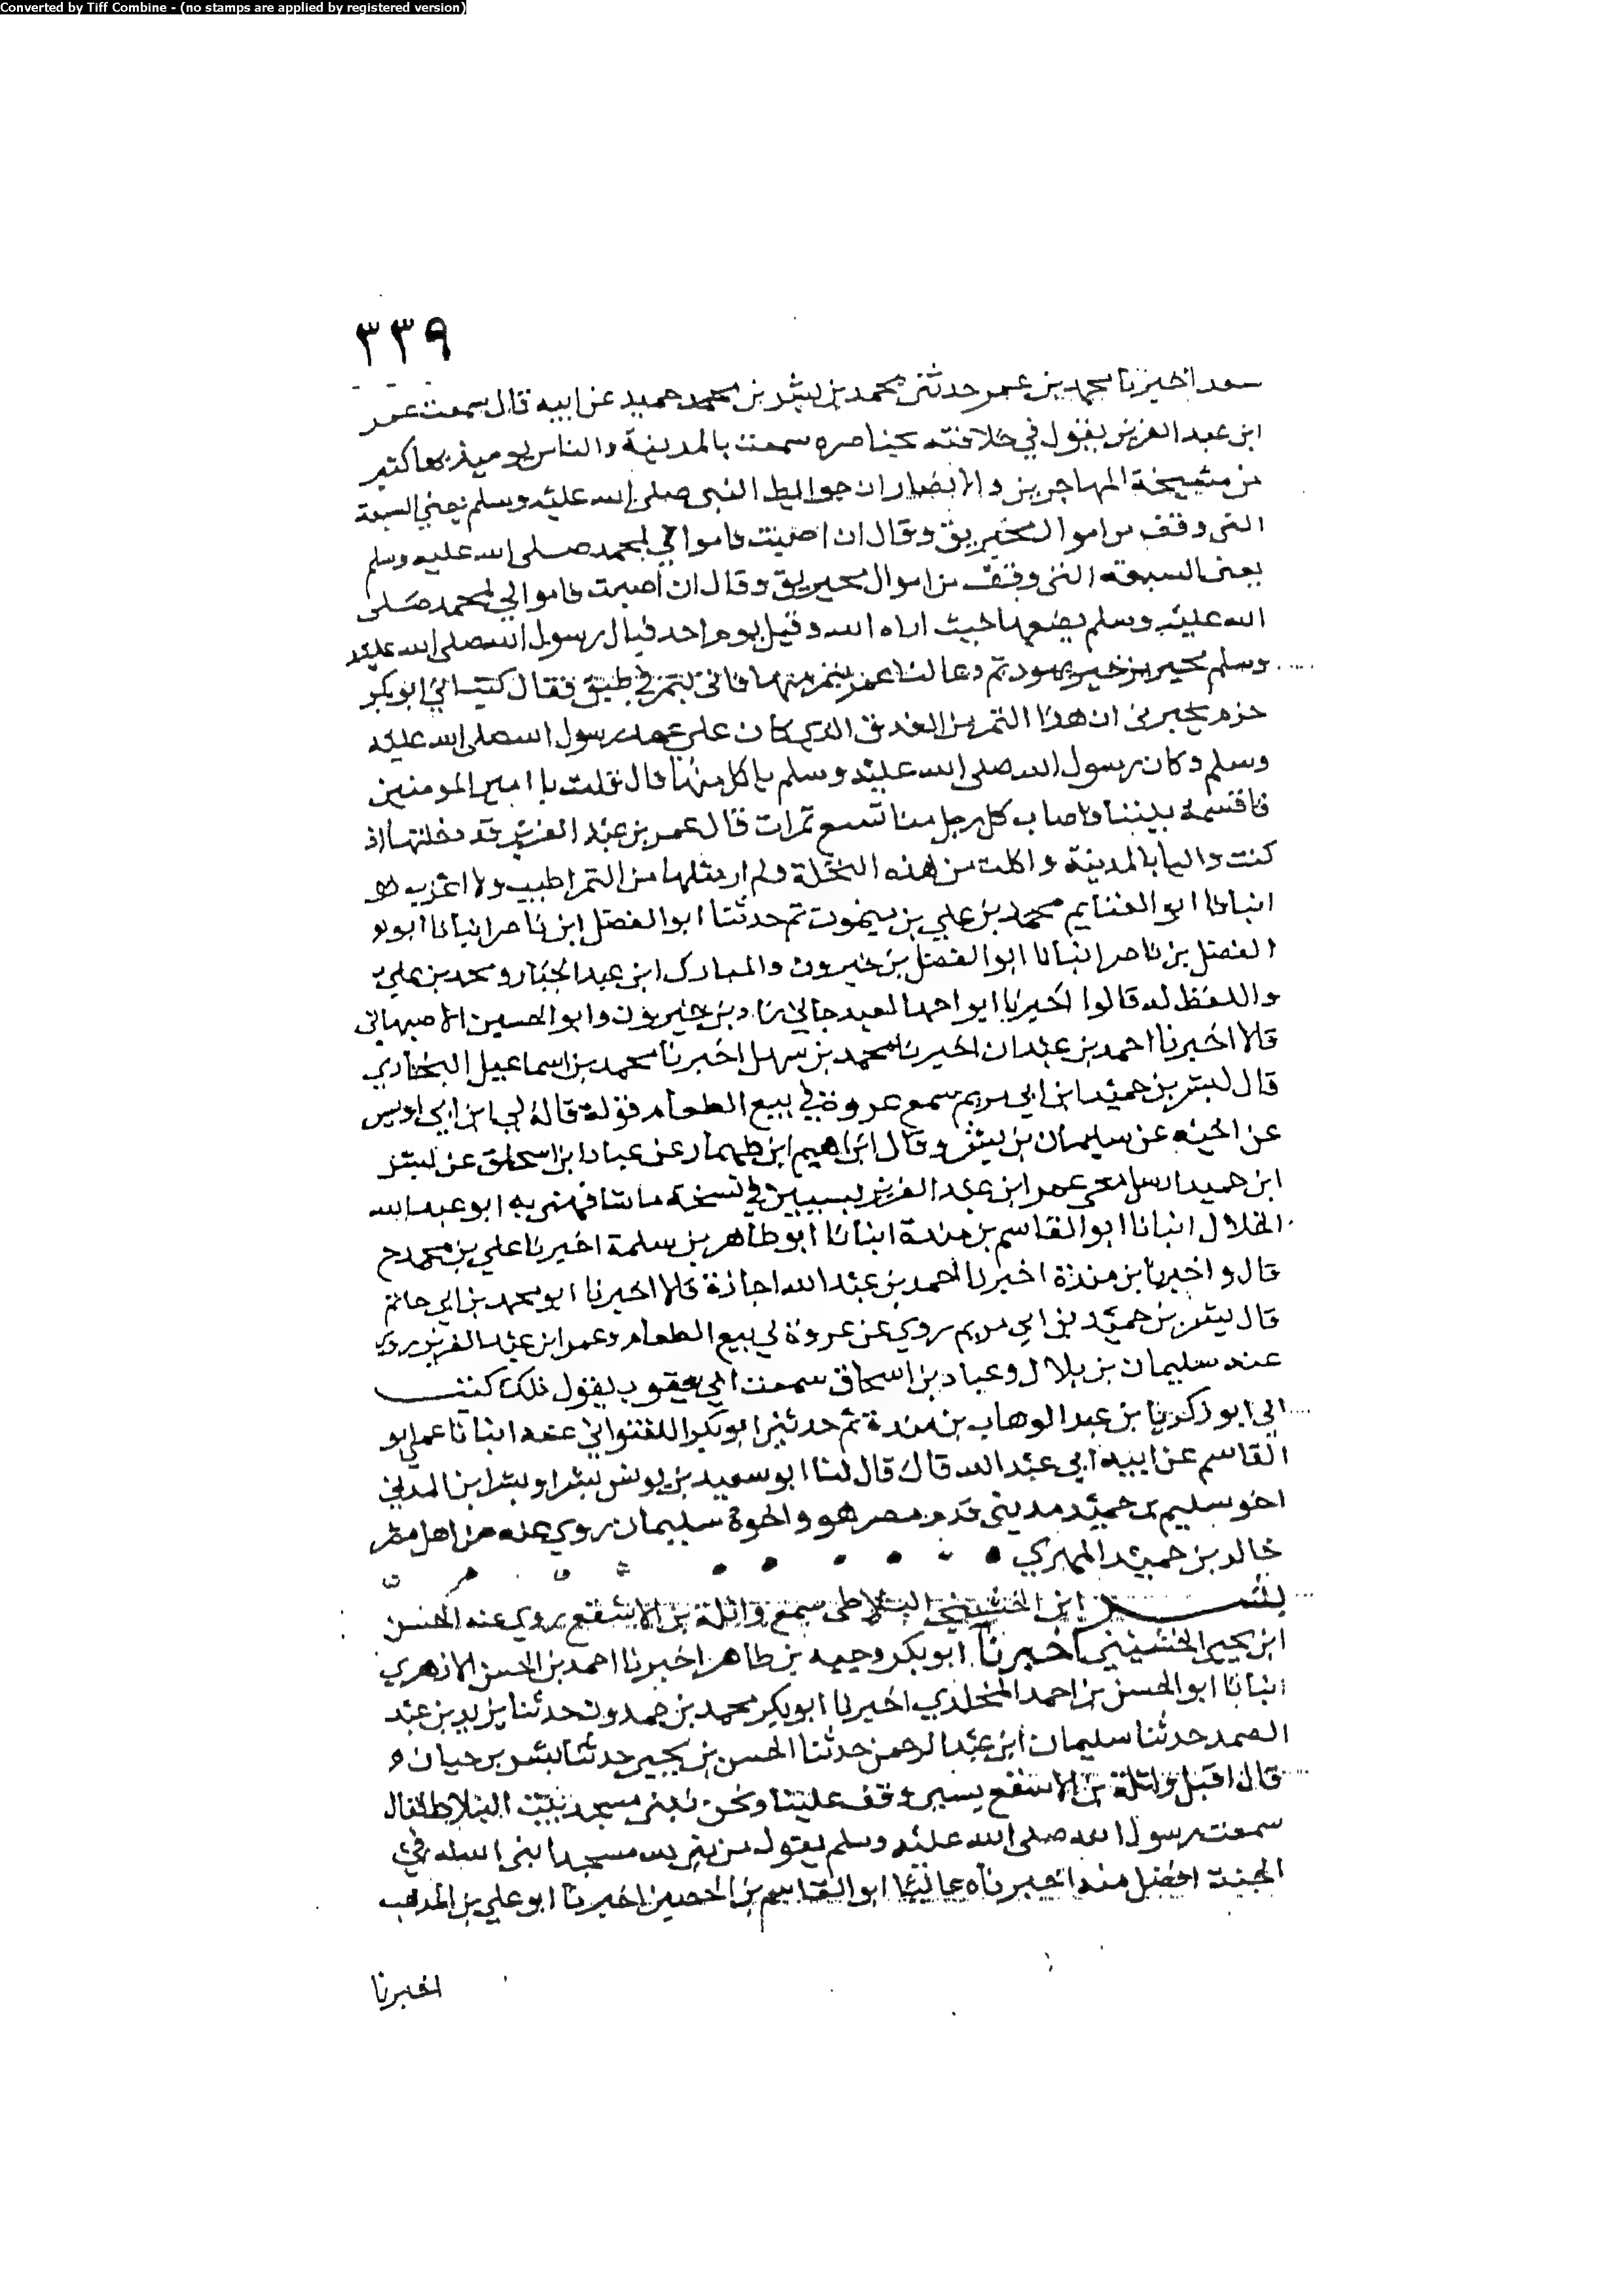 Converted by Tiff Combine - (no stamps are applied by registered version)
٣٣٩
سعد اخبرنا محمد بن عمر حدثنى محمد بن بشر بن محمد حميد عن ابيه قال سمعت عمر
ابن عبد العزيز يقول في خلافته بخناصره سمعت بالمدينة والناس يوميذ بها كثير
من مشيخة المهاجرين والانصار ان حوايط النبى صلى الله عليه وسلم يعني السبعة
التى وقف من اموال مخيريق وقال ان اصبت فاموالي لمحمد صلى الله عليه وسلم
يعنى السبعه التى وقف من اموال مخيريق وقال ان اصبت فاموالي لمحمد صلى
الله عليه وسلم يضعها حيث اراه الله وقتل يوم احد فقال رسول الله صلى الله عليه
وسلم مخيريق خير يهود ثم دعا لنا عمر بتمر منها فاتى بتمر في طبق فقال كتب الي ابو بكر
حزم يخبرنى ان هذا التمر من العذق الذي كان على عهد رسول الله صلى الله عليه
وسلم وكان رسول الله صلى الله عليه وسلم ياكل منها قال قلت يا امير المومنين
فاقسمه بيننا فاصاب كل رجل منا تسع تمرات قال عمر بن عبد العزيز قد دخلتها اذ
كنت واليا بالمدينة واكلت من هذه النخلة ولم ار مثلها من التمر اطيب ولا اعذب
انبانا ابو الغنايم محمد بن علي بن ميموت ثم حدثنا ابو الفضل ابن ناصر انبانا ابو
الفضل بن ناصر انبانا ابو الفضل بن خيرون والمبارك ابن عبد الجبار ومحمد بن علي
واللفظ له قالوا اخبرنا ابو احمد زاد بن خيرون وابو الحسين الاصبهاني
قالا اخبرنا احمد بن عبدان اخبرنا محمد بن سهل اخبرنا محمد بن اسماعيل البخاري
قال بشر بن حميد ابن ابي مريم سمع عروة في بيع الطعام قوله قاله لي ابن ابي اويس
عن اخيه عن سليمان بن بشر وقال ابراهيم ابن طهمان عن عباد ابن اسحاق عن بشر
ابن حميد ارسل معي عمر ابن عبد العزيز في نسخة ما شافهنى به ابو عبد الله
الخلال انبانا ابو القاسم بن مندة انبانا ابو طاهر بن سلمة اخبرنا علي بن محمد ح
قال واخبرنا بن مندة اخبرنا احمد بن عبد الله اجازة قالا اخبرنا ابو محمد بن ابي حاتم
قال بشر بن حميد بن ابي مريم روي عن عروة في بيع الطعام وعمر ابن عبد العزيز روى
عنه سليمان بن بلال وعباد بن اسحاق سمعت ابي يعقوب يقول ذلك كتب
الي ابو زكريا بن عبد الوهاب بن مندة ثم حدثنى ابو بكر اللفتواني عنه انبانا عمي ابو
القاسم عن ابيه ابي عبد الله قال قال لنا ابو سعيد بن يونس بشر ابن المدني
اخو سليم بن حميد مدينى قدم مصر هو واخوه سليمان روي عنه من اهل مصر
خالد بن حميد المهري
بشر ابن الخشيني البلاطى سمع واثلة بن الاسقع روي عنه الحسن
ابن يحيى الخشيني اخبرنا ابو بكر وجيه بن طاهر اخبرنا احمد بن الحسن الازهري
انبانا ابو الحسن بن احمد المخلدي اخبرنا ابو بكر محمد بن حمدون حدثنا يزيد بن عبد
الصمد حدثنا سليمان ابن عبد الرحمن حدثنا الحسن بن يحيى حدثنا بشر بن حيان
قال اقبل واثلة بن الاسقع يسير وقف علينا ونحن نبنى مسجد بيت البلاط فقال
سمعت رسول الله صلى الله عليه وسلم يقول من بنى لله مسجدا بنى الله له في
الجنة افضل منه اخبرناه عاليا ابو القاسم بن الحصين اخبرنا ابو علي بن المذهب
اخبرنا